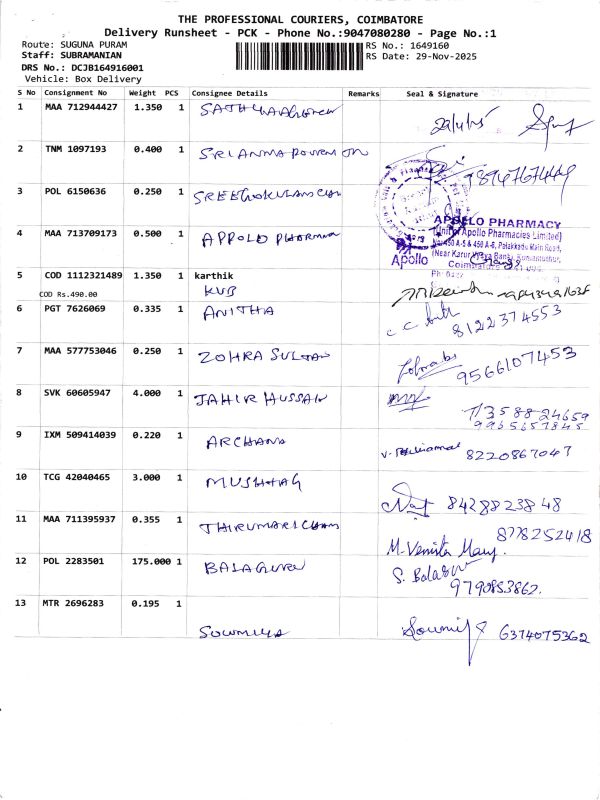 THE PROFESSIONAL COURIERS, COIMBATORE
Delivery Runsheet - PCK - Phone No.:9047080280 - Page No.:1
Route: SUGUNA PURAM
RS No.: 1649160
Staff: SUBRAMANIAN
RS Date: 29-Nov-2025
DRS No.: DCJB164916001
Vehicle: Box Delivery
S No Consignment No Weight PCS Consignee Details Remarks Seal & Signature
1 MAA 712944427 1.350 1
2 TNM 1097193 0.400 1
3 POL 6150636 0.250 1
4 MAA 713709173 0.500 1 APPOLO PHARMA
APOLLO PHARMACY
(Unit of Apollo Pharmacies Limited)
No:450 A-5 & 450 A-6, Palakkadu Main Road,
(Near Karur Vysya Bank), Kuniamuthur,
Apollo Coimbatore
5 COD 1112321489 1.350 1 karthik
COD Rs.490.00 KVB
6 PGT 7626069 0.335 1 ANITHA
8122374553
7 MAA 577753046 0.250 1 ZOHRA SULTAN
9566107453
8 SVK 60605947 4.000 1 JAHIR HUSSAN
9 IXM 509414039 0.220 1 ARCHANA
8220867047
10 TCG 42040465 3.000 1 MUSHTAG
8428823848
11 MAA 711395937 0.355 1
8778252418
12 POL 2283501 175.000 1 BALAGURU
S. Balaguru
9790853862.
13 MTR 2696283 0.195 1
SOWMIYA
6374075362